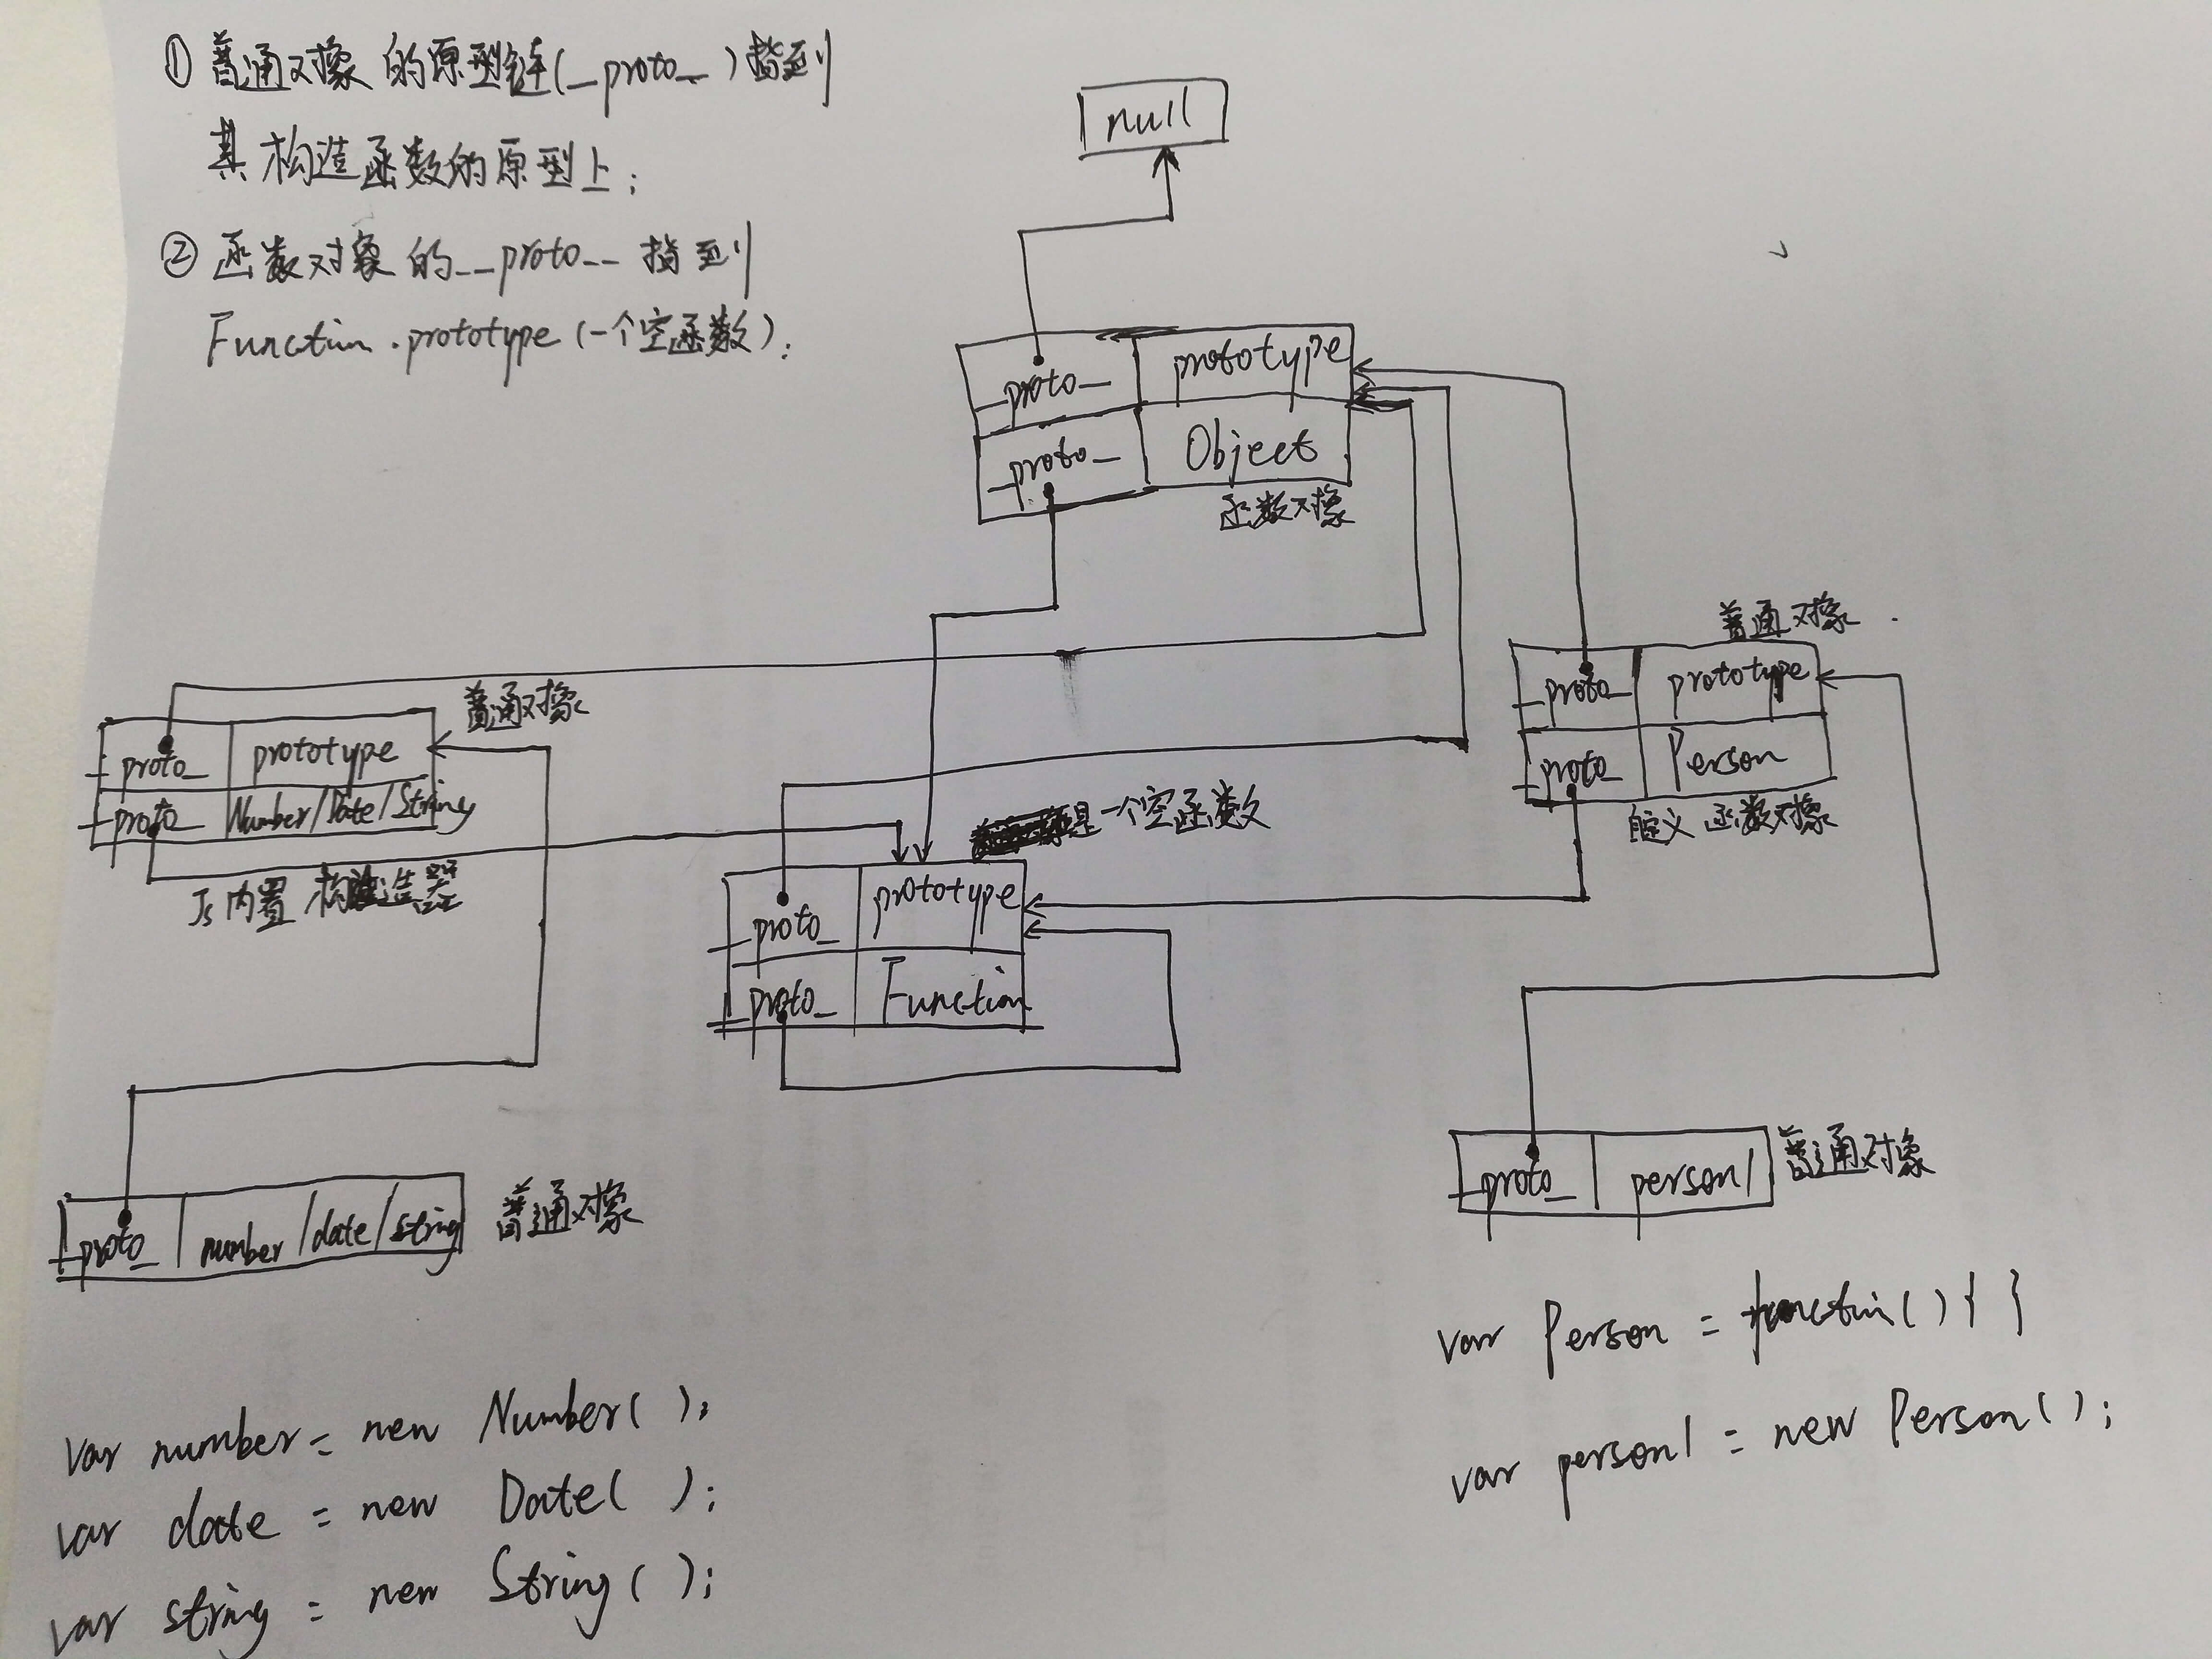 ① 普通对象的原型链(_proto_)指到
其构造函数的原型上;
② 函数对象的__proto__指到
Function.prototype(一个空函数).
null
_proto_ prototype
_proto_ Object
函数对象
普通对象
_proto_ prototype
_proto_ Person
自定义函数对象
普通对象
_proto_ prototype
_proto_ Number/Date/String
Js内置构造器
是一个空函数
_proto_ prototype
_proto_ Function
_proto_ person1 普通对象
_proto_ number/date/string 普通对象
var Person = function(){ }
var person1 = new Person();
var number = new Number();
var date = new Date();
var string = new String();